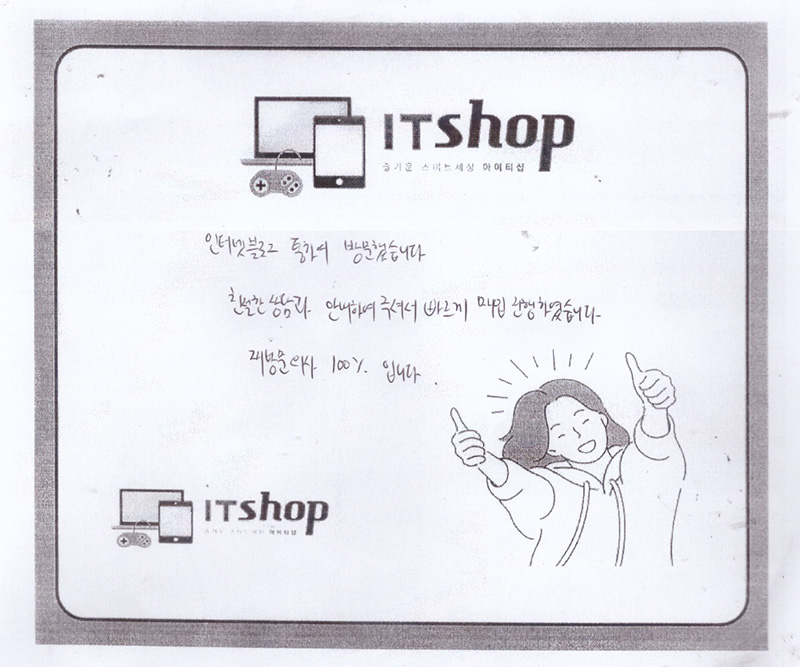 ITshop
즐거운 스마트세상 아이티샵
인터넷블로그 통하여 방문했습니다
친절한 상담과 안내하여 주셔서 빠르게 매입 진행하였습니다.
재방문의사 100% 입니다
ITshop
즐거운 스마트세상 아이티샵